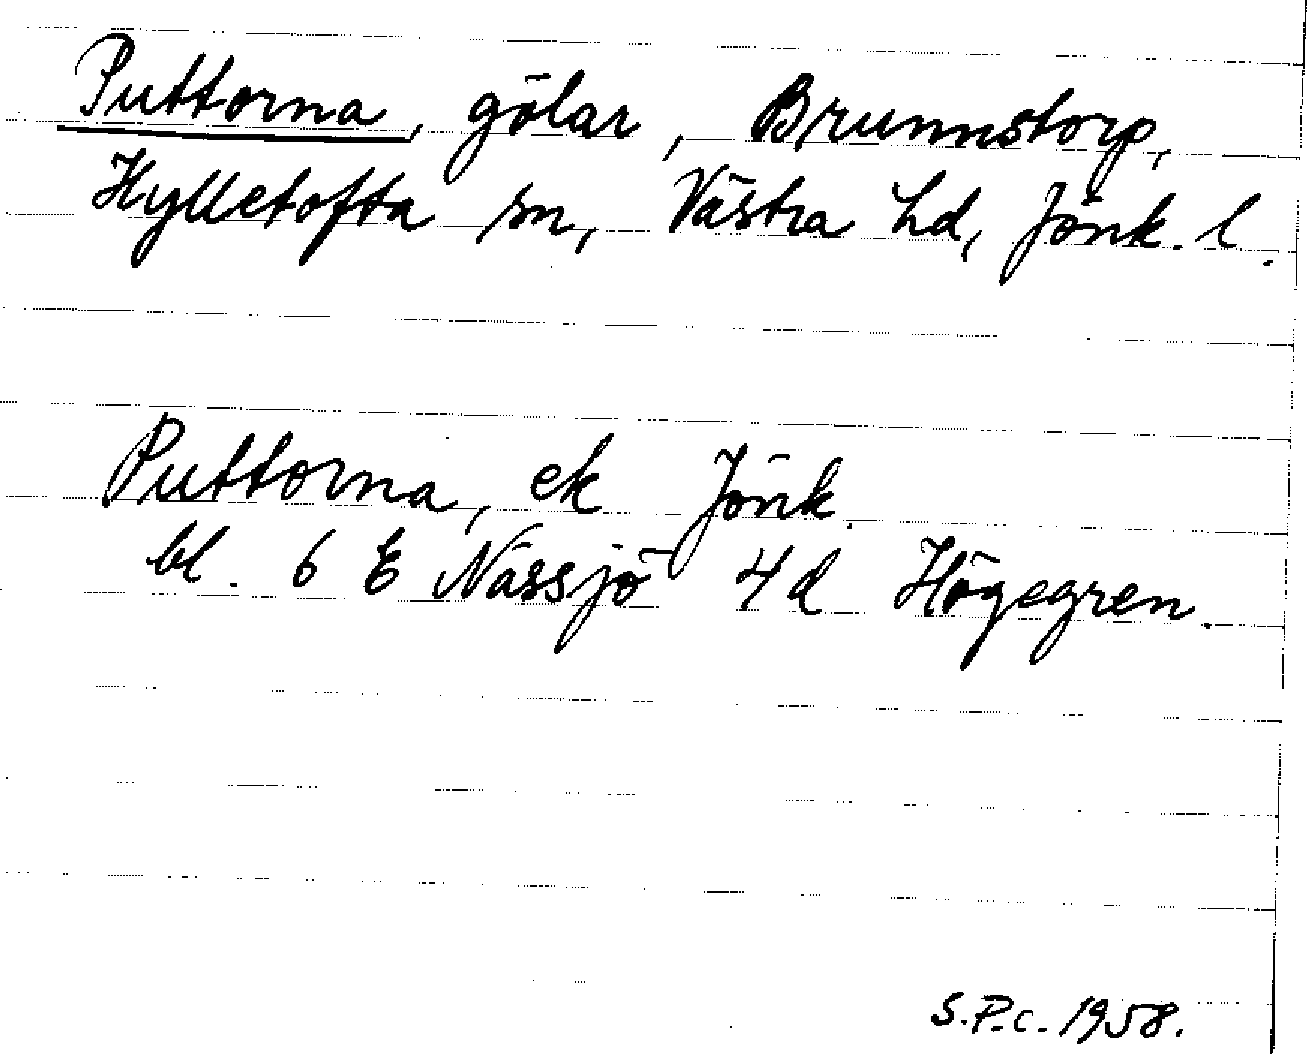 Puttorna, gölar, Brunnstorp,
Hylletofta sn, Västra hd, Jönk. l.
Puttorna, ek Jönk.
bl. 6 E Nässjö 4d Högegren.
S.P.c. 1958.